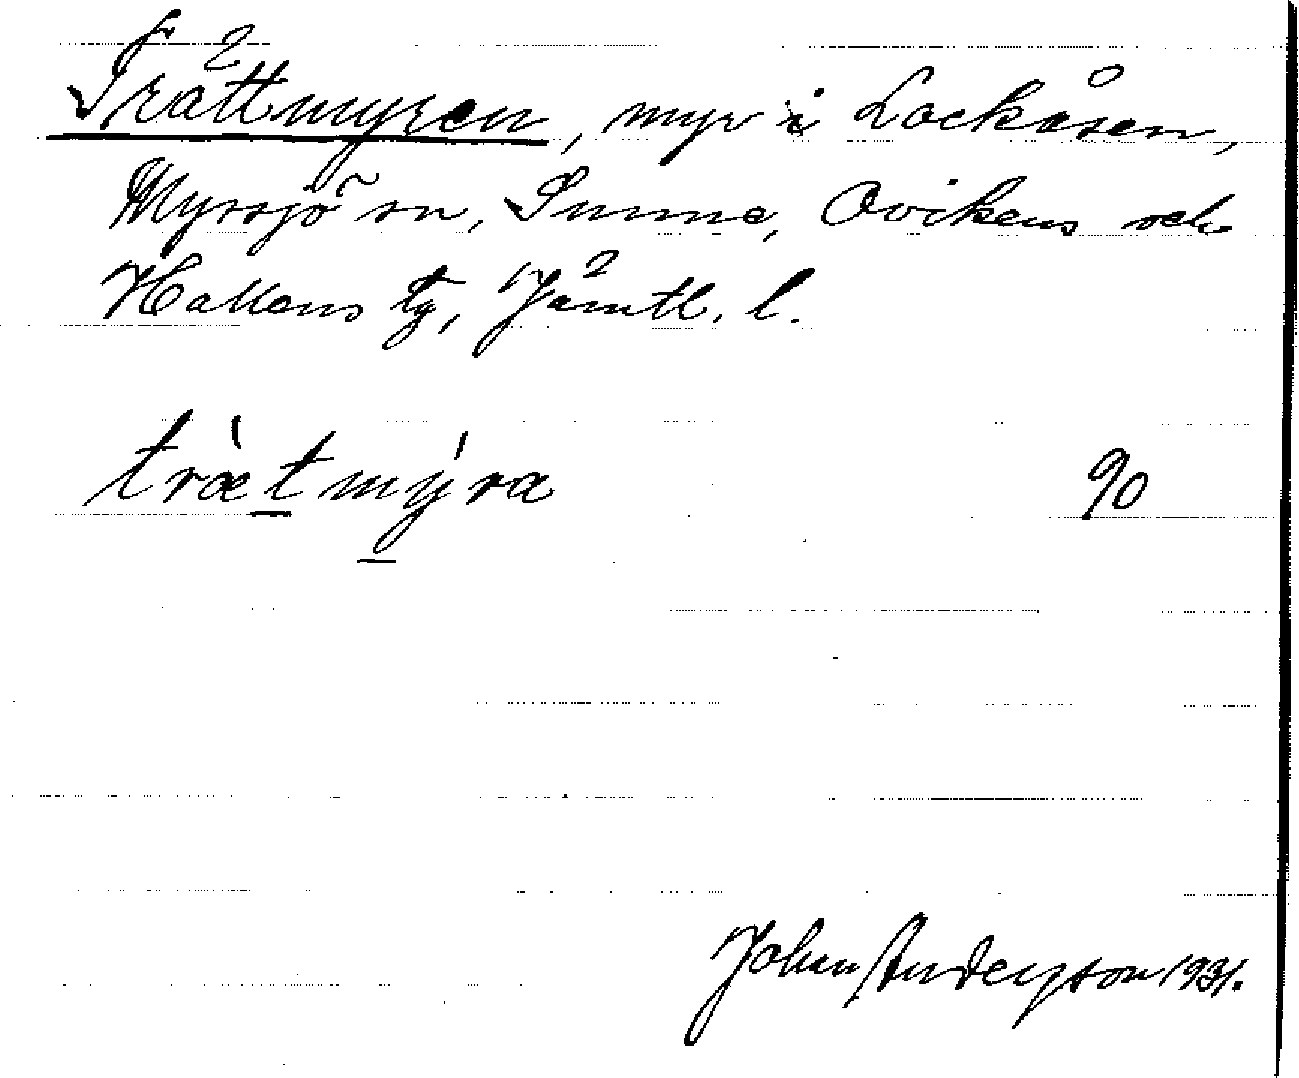 Trättmyren, myr i Lockåsen,
Myssjö sn, Sunne, Ovikens och
Hallens tg, Jämtl. l.
trætmýra 90
Johan Anderzson 1931.